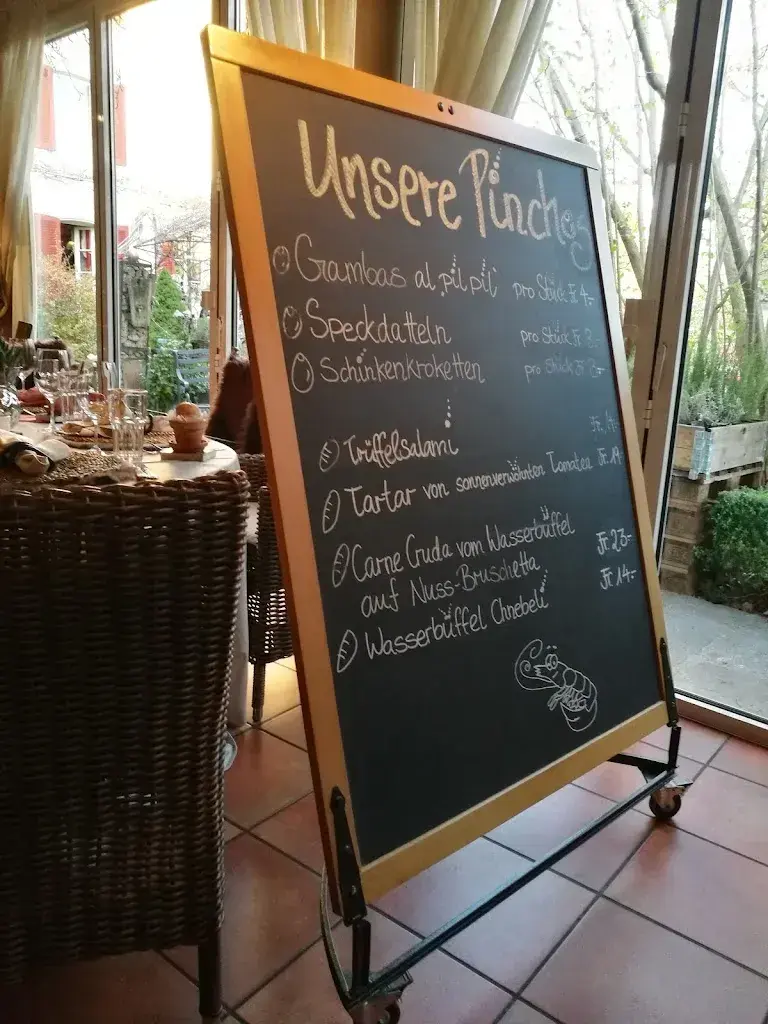 Unsere Pinchos
Gambas al pil pil pro Stück Fr. 4.-
Speckdatteln pro Stück Fr. 3.-
Schinkenkroketten pro Stück Fr.
Trüffelsalami Fr. 14.-
Tartar von sonnenverwöhnten Tomaten Fr. 14.-
Carne Cruda vom Wasserbüffel
auf Nuss-Bruschetta Fr. 23.-
Wasserbüffel Chnebeli Fr. 14.-